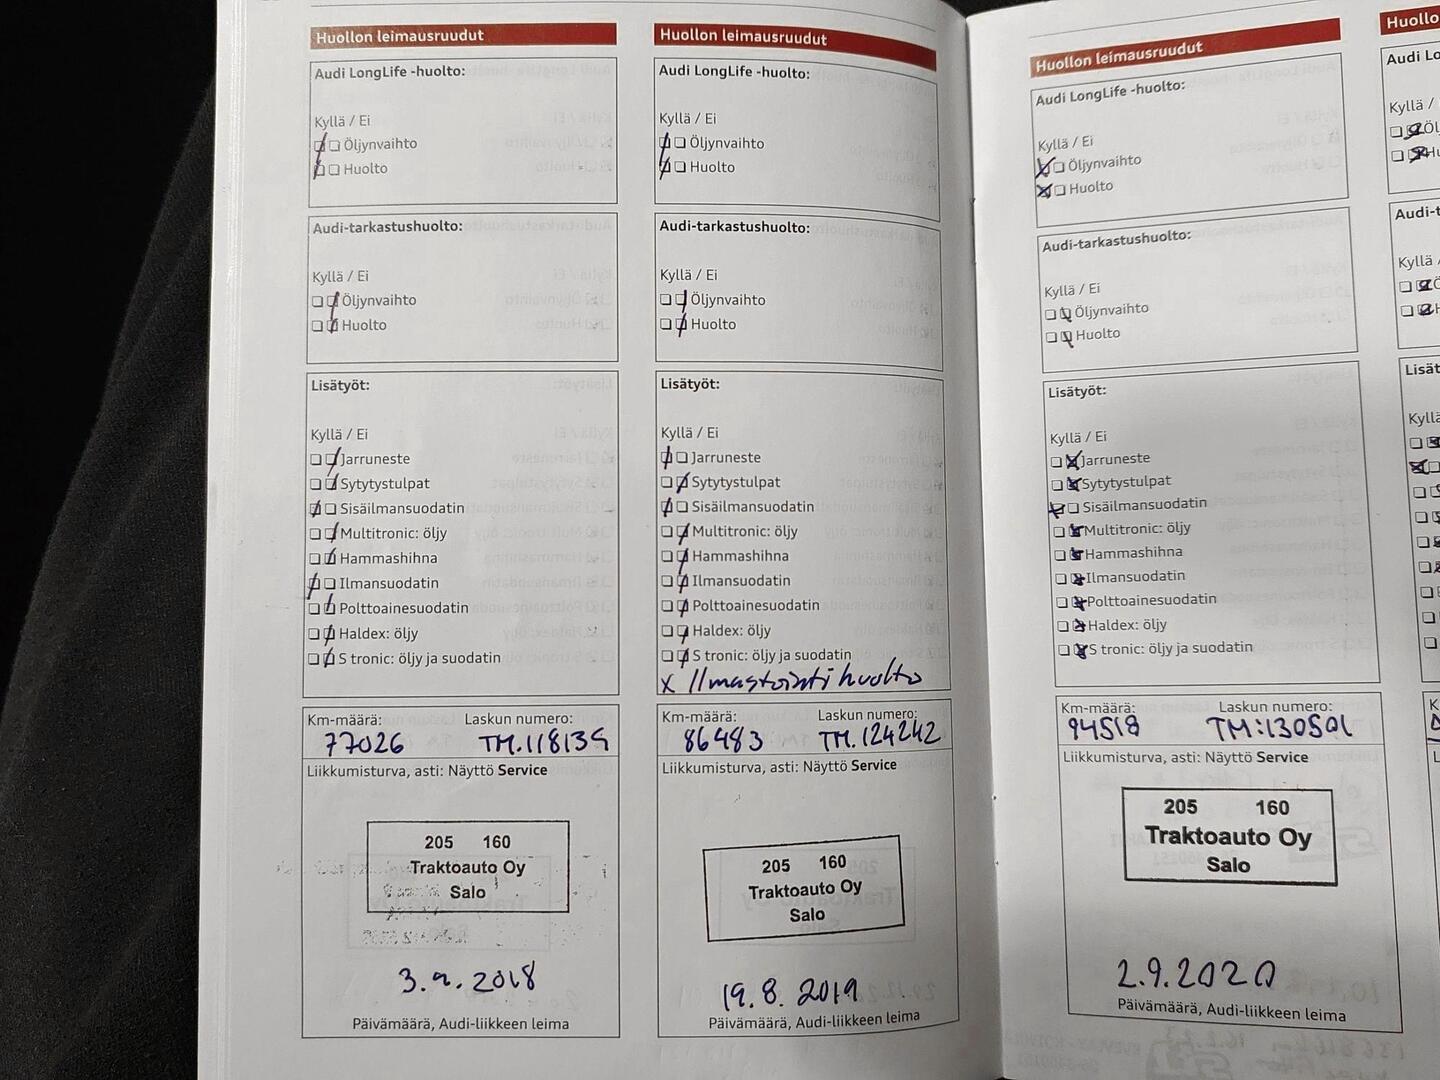 Huollon leimausruudut
Audi LongLife -huolto:
Kyllä / Ei
Öljynvaihto
Huolto
Audi-tarkastushuolto:
Kyllä / Ei
Öljynvaihto
Huolto
Lisätyöt:
Kyllä / Ei
Jarruneste
Sytytystulpat
Sisäilmansuodatin
Multitronic: öljy
Hammashihna
Ilmansuodatin
Polttoainesuodatin
Haldex: öljy
S tronic: öljy ja suodatin
Km-määrä: Laskun numero:
77026 TM.118139
Liikkumisturva, asti: Näyttö Service
205 160
Traktoauto Oy
Salo
3.9.2018
Päivämäärä, Audi-liikkeen leima
Huollon leimausruudut
Audi LongLife -huolto:
Kyllä / Ei
Öljynvaihto
Huolto
Audi-tarkastushuolto:
Kyllä / Ei
Öljynvaihto
Huolto
Lisätyöt:
Kyllä / Ei
Jarruneste
Sytytystulpat
Sisäilmansuodatin
Multitronic: öljy
Hammashihna
Ilmansuodatin
Polttoainesuodatin
Haldex: öljy
S tronic: öljy ja suodatin
X Ilmastointihuolto
Km-määrä: Laskun numero:
86483 TM.124242
Liikkumisturva, asti: Näyttö Service
205 160
Traktoauto Oy
Salo
19.8.2019
Päivämäärä, Audi-liikkeen leima
Huollon leimausruudut
Audi LongLife -huolto:
Kyllä / Ei
Öljynvaihto
Huolto
Audi-tarkastushuolto:
Kyllä / Ei
Öljynvaihto
Huolto
Lisätyöt:
Kyllä / Ei
Jarruneste
Sytytystulpat
Sisäilmansuodatin
Multitronic: öljy
Hammashihna
Ilmansuodatin
Polttoainesuodatin
Haldex: öljy
S tronic: öljy ja suodatin
Km-määrä: Laskun numero:
94518 TM:130501
Liikkumisturva, asti: Näyttö Service
205 160
Traktoauto Oy
Salo
2.9.2020
Päivämäärä, Audi-liikkeen leima